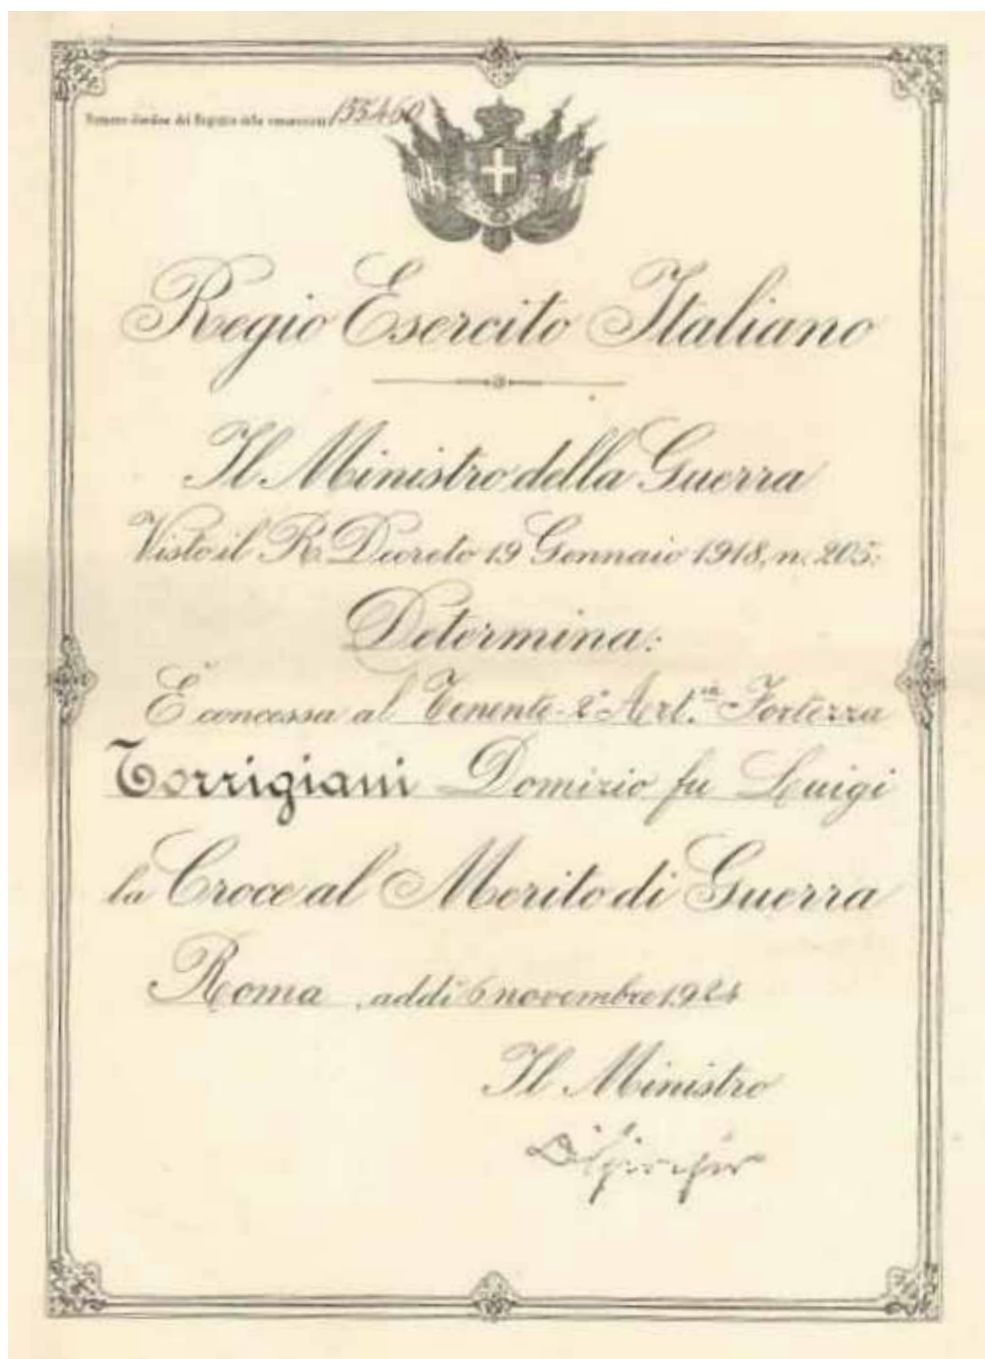 Numero d'ordine del Registro delle concessioni 155460
Regio Esercito Italiano
Il Ministro della Guerra
Visto il R. Decreto 19 Gennaio 1918, n. 205:
Determina:
È concessa al Tenente 2° Art.ia Fortezza
Torrigiani Domizio fu Luigi
la Croce al Merito di Guerra
Roma, addì 6 novembre 1924
Il Ministro